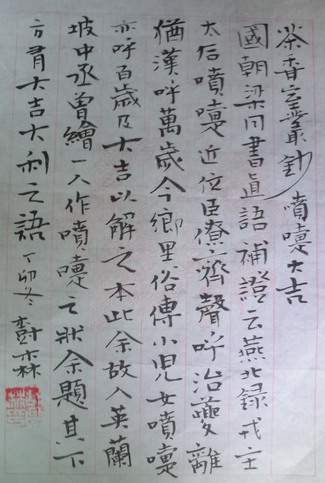 茶香室叢鈔 噴嚏大吉
國朝梁同書直語補證云燕北録戎主
太后噴嚏近位臣僚齊聲呼治夔離
猶漢呼萬歲今鄉里俗傳小兒女噴嚏
亦呼百歲及大吉以解之本此余故人英蘭
坡中丞曾繪一人作噴嚏之狀余題其下
方有大吉大利之語 丁卯冬 森